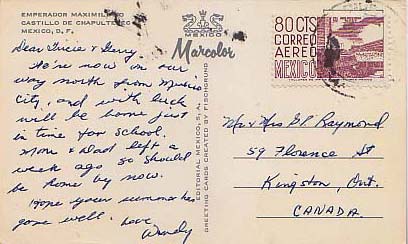 EMPERADOR MAXIMIL
CASTILLO DE CHAPULTEPEC
MEXICO, D. F.
MEXICO
Marcolor
80 CTS
CORREO
AEREO
MEXICO
Dear Tricia & Gerry,
We're now on our
way north from Mexico
City, and with luck
will be home just
in time for school.
Mom & Dad left a
week ago so should
be home by now.
Hope your summer has
gone well. Love
Wendy
EDITORIAL MEXICO, S. A.
GREETING CARDS CREATED BY FISCHGRUND
Mr & Mrs G P Raymond
59 Florence St
Kingston, Ont.
CANADA.